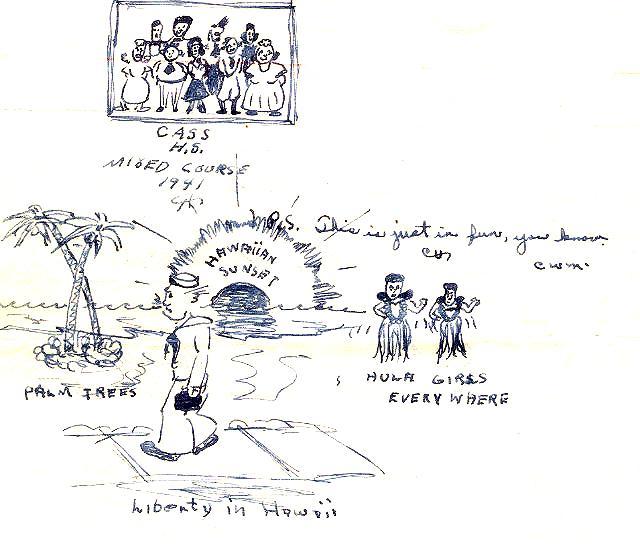 CASS
H.S.
MIXED COURSE
1941
P.S. This is just in fun, you know
cwm.
HAWAIIAN
SUNSET
PALM TREES
HULA GIRLS
EVERY WHERE
Liberty in Hawaii